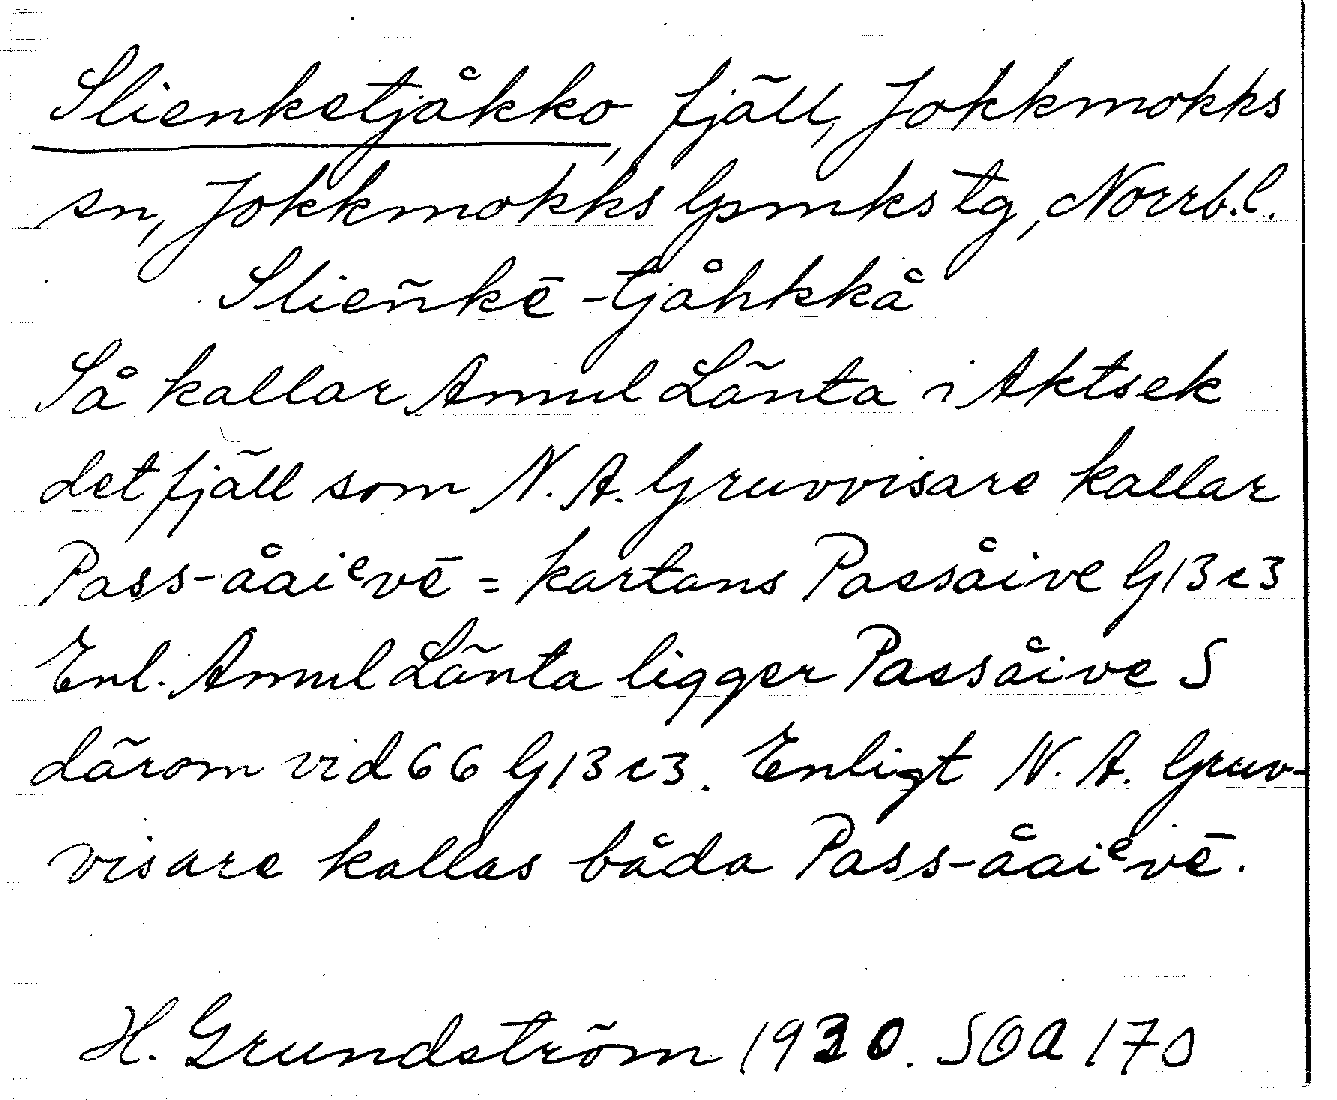 Slienketjåkko, fjäll, Jokkmokks
sn, Jokkmokks lpmkstg, Norrb.l.
Slieñkē-tjåhkkå
Så kallar Amul Länta i Aktsek
det fjäll som N. A. Gruvvisare kallar
Pass-åaiᵉvē = kartans Passåive G13c3
Enl. Amul Länta ligger Passåive S
därom vid 66 G13c3. Enligt N. A. Gruv-
visare kallas båda Pass-åaiᵉvē.
H. Grundström 1930. SOA 170